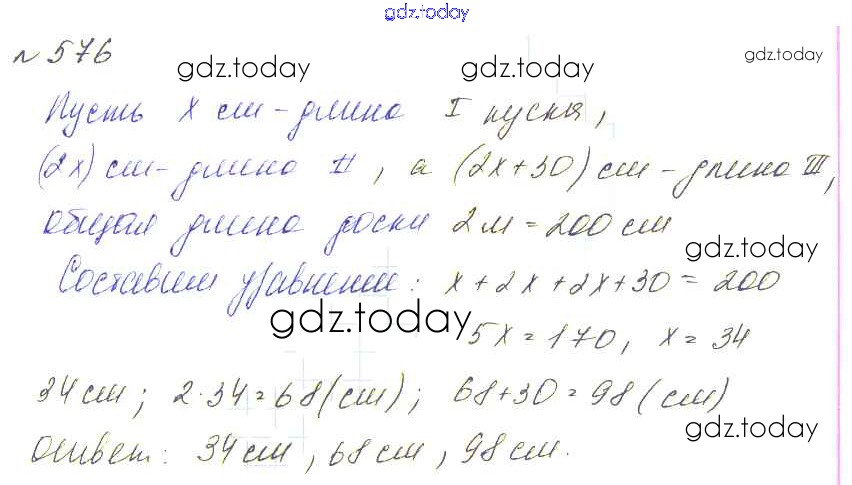 gdz.today
№ 576
gdz.today gdz.today gdz.today
Пусть x см - длина I куска,
(2x) см - длина II, а (2x+30) см - длина III,
общая длина доски 2 м = 200 см
gdz.today
Составим уравнение: x + 2x + 2x + 30 = 200
gdz.today
5x = 170, x = 34
34 см; 2·34 = 68 (см); 68+30 = 98 (см)
gdz.today
Ответ: 34 см, 68 см, 98 см.